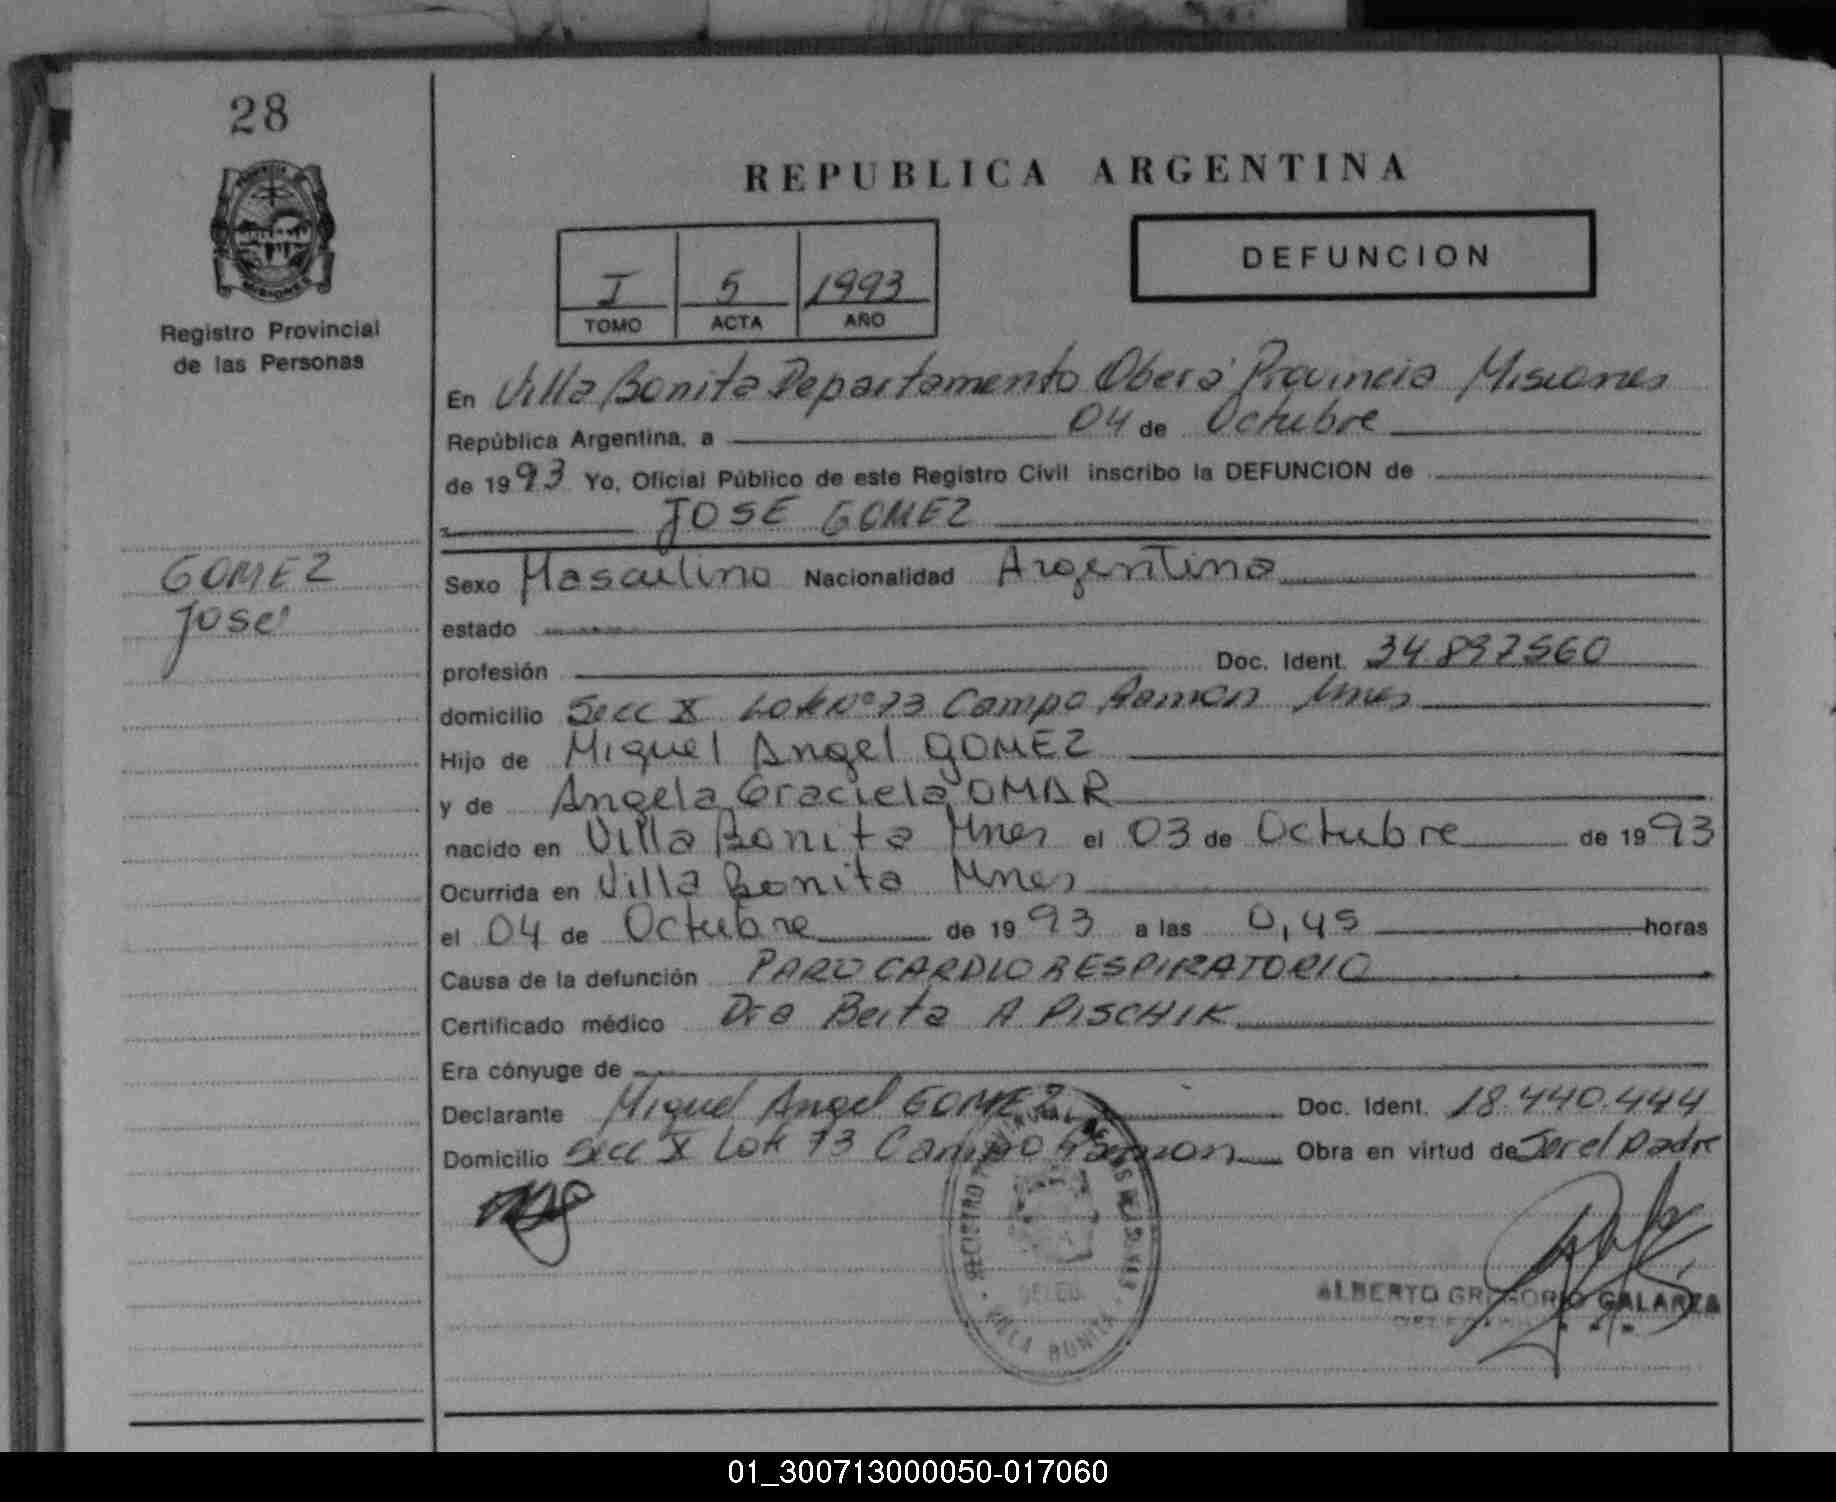 28
MISIONES
Registro Provincial
de las Personas
GOMEZ
José
REPUBLICA ARGENTINA
I 5 1993
TOMO ACTA AÑO
DEFUNCION
En Villa Bonita Departamento Oberá Provincia Misiones
República Argentina, a 04 de Octubre
de 1993 Yo, Oficial Público de este Registro Civil inscribo la DEFUNCION de
JOSE GOMEZ
Sexo Masculino Nacionalidad Argentina
estado
profesión Doc. Ident. 34.897560
domicilio Secc X Lote Nº 73 Campo Ramon Mnes
Hijo de Miguel Angel GOMEZ
y de Angela Graciela OMAR
nacido en Villa Bonita Mnes el 03 de Octubre de 1993
Ocurrida en Villa Bonita Mnes
el 04 de Octubre de 1993 a las 0,45 horas
Causa de la defunción PARO CARDIO RESPIRATORIO
Certificado médico Dra Berta A PISCHIK
Era cónyuge de
Declarante Miguel Angel GOMEZ Doc. Ident. 18.440.444
Domicilio Secc X Lote 73 Campo Ramon Obra en virtud de Ser el Padre
REGISTRO DE LAS PERSONAS
DELEG.
VILLA BONITA
ALBERTO GREGORIO GALARZA
01_300713000050-017060